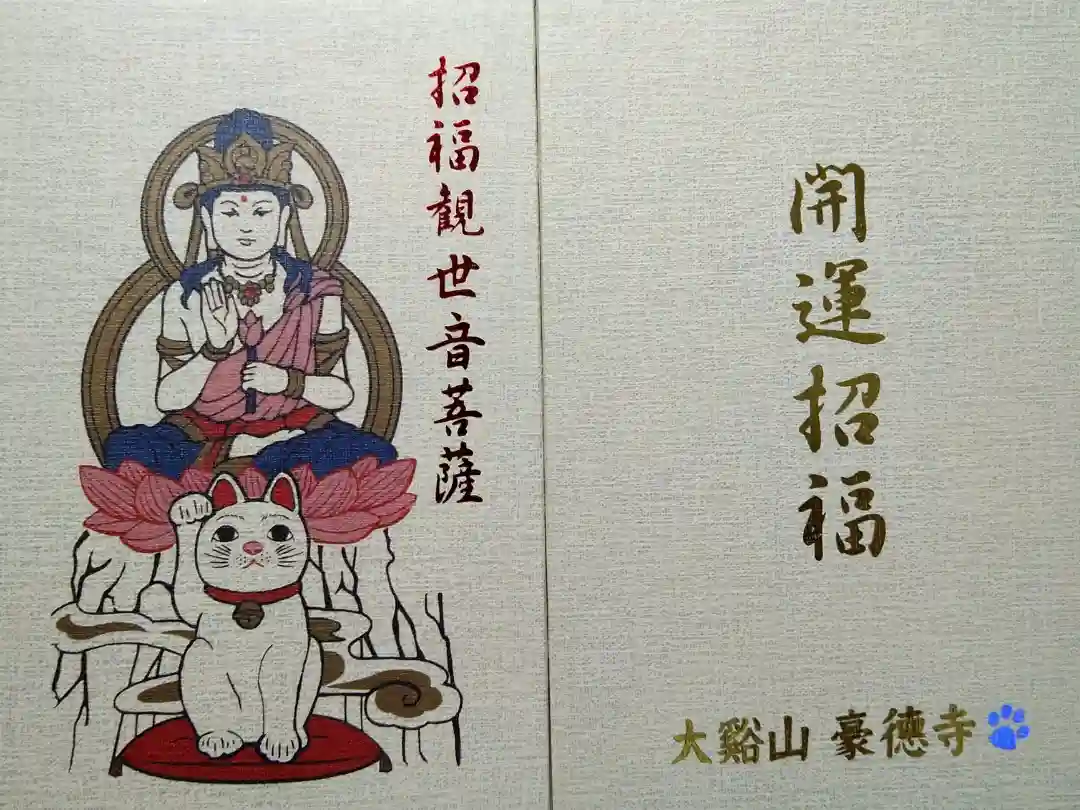 招福観世音菩薩
開運招福
大谿山 豪德寺